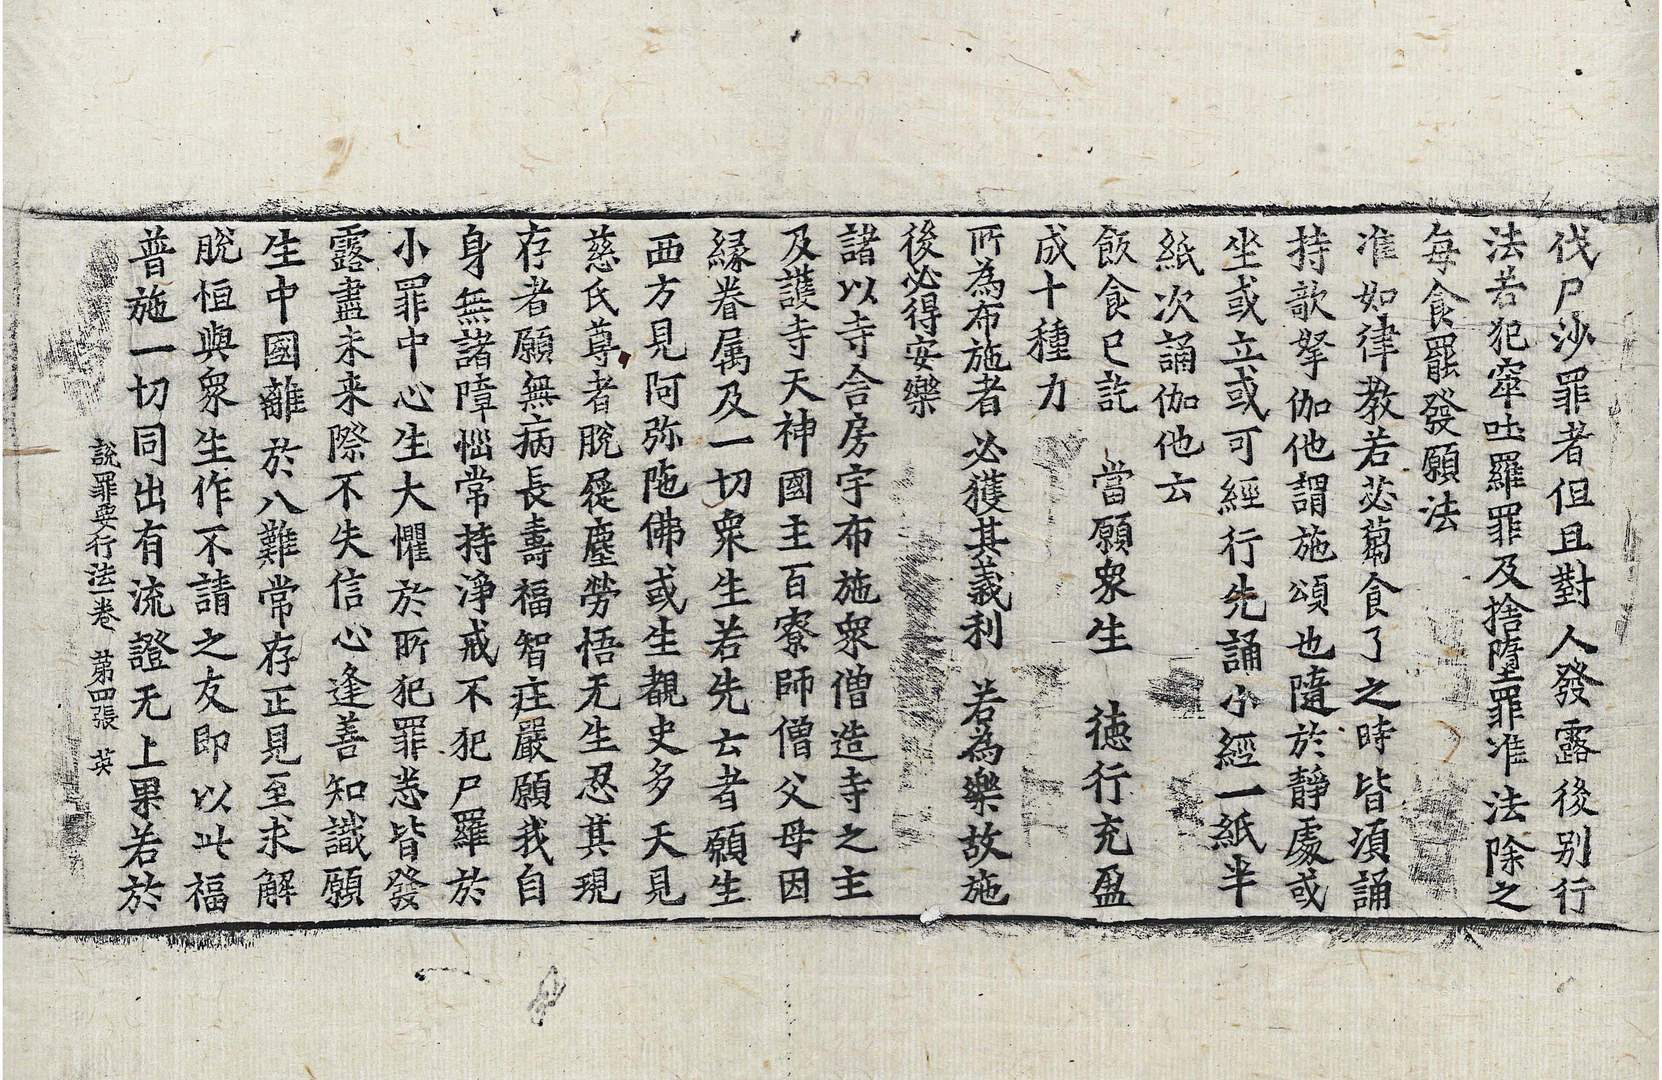 伐尸沙罪者但且對人發露後別行
法若犯窣吐羅罪及捨墮罪准法除之
每食罷發願法
准如律教若苾蒭食了之時皆湏誦
持歌拏伽他謂施頌也隨於靜處或
坐或立或可經行先誦小經一紙半
紙次誦伽他云
飲食已訖　當願衆生　德行充盈
成十種力
所為布施者　必獲其義利　若為樂故施
後必得安樂
諸以寺舍房宇布施衆僧造寺之主
及護寺天神國主百寮師僧父母因
緣眷属及一切衆生若先亡者願生
西方見阿弥陁佛或生覩史多天見
慈氏尊者脫屣塵勞悟无生忍其現
存者願無病長壽福智庄嚴願我自
身無諸障惱常持淨戒不犯尸羅於
小罪中心生大懼於所犯罪悉皆發
露盡未来際不失信心逢善知識願
生中國離於八難常存正見至求解
脫恒與衆生作不請之友即以此福
普施一切同出有流證无上果若於
說罪要行法一卷　苐四張　英